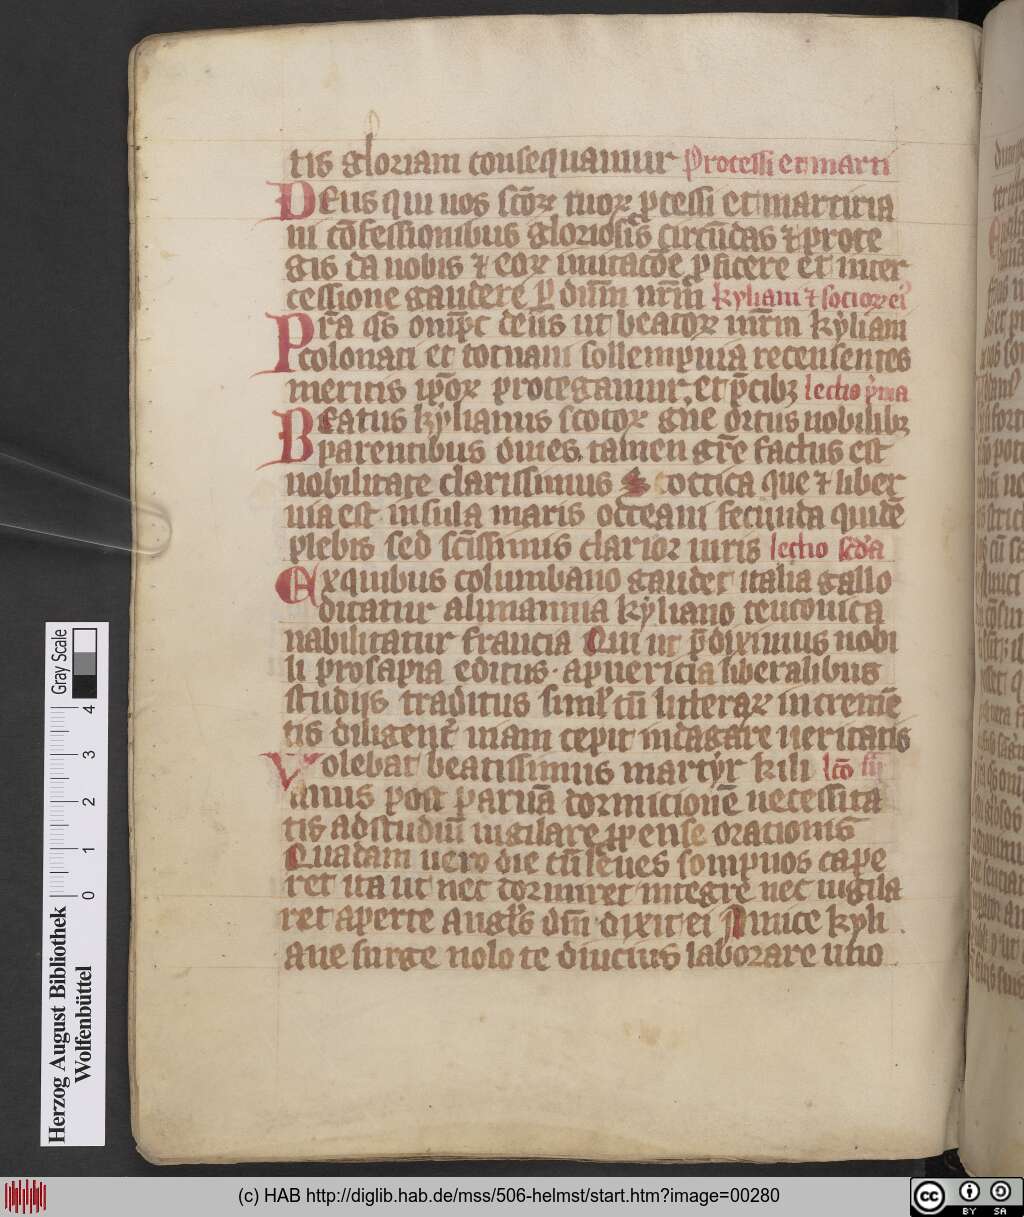 tis gloriam consequamur Processi et marti
Deus qui nos sc̄oꝝ tuoꝝ ꝓcessi et martinia
ni cōfessionibus gloriosis circūdas ⁊ prote
gis da nobis ⁊ eoꝝ imitacōe ꝓficere et inter
cessione gaudere ꝑ dn̄m nr̄m kyliani ⁊ socioꝝ ei᷒
Pr̄a qs̄ omp̄c deus ut beatoꝝ mr̄m kyliani
colonati et totnani sollempnia recensentes
meritis ip̄oꝝ protegamur et p̄cibꝫ lectio p̄ma
Beatus kylianus scotoꝝ gn̄e ortus nobilibꝫ
parentibus diues tamen gr̄e factus est
nobilitate clarissimus scottica que ⁊ liber
nia est insula maris occeani fecunda quidē
plebis sed sc̄issimis clarior uiris lectio sc̄da
Exquibus columbano gaudet italia gallo
ditatur alimannia kyliano teutonica
nabilitatur francia Qui ut p̄diximus nobi
li prosapia editus apuericia liberalibus
studijs traditus siml̕ cū litteraꝝ incremē
tis diligent̕ inam cepit indagare ueritatis
Volebat beatissimus martyr kili lc̄o iij
anus post paruā dormicionē necessita
tis adstudiū uigilare ꝓpense orationis
Quadam uero die cū leues sompnos cape
ret ita ut nec dormiret integre nec uigila
ret aperte angl̕s dn̄i dixit ei Amice kyli
ane surge nolo te diucius laborare uno
Gray Scale
4
3
2
1
0
Herzog August Bibliothek
Wolfenbüttel
(c) HAB http://diglib.hab.de/mss/506-helmst/start.htm?image=00280
cc BY SA